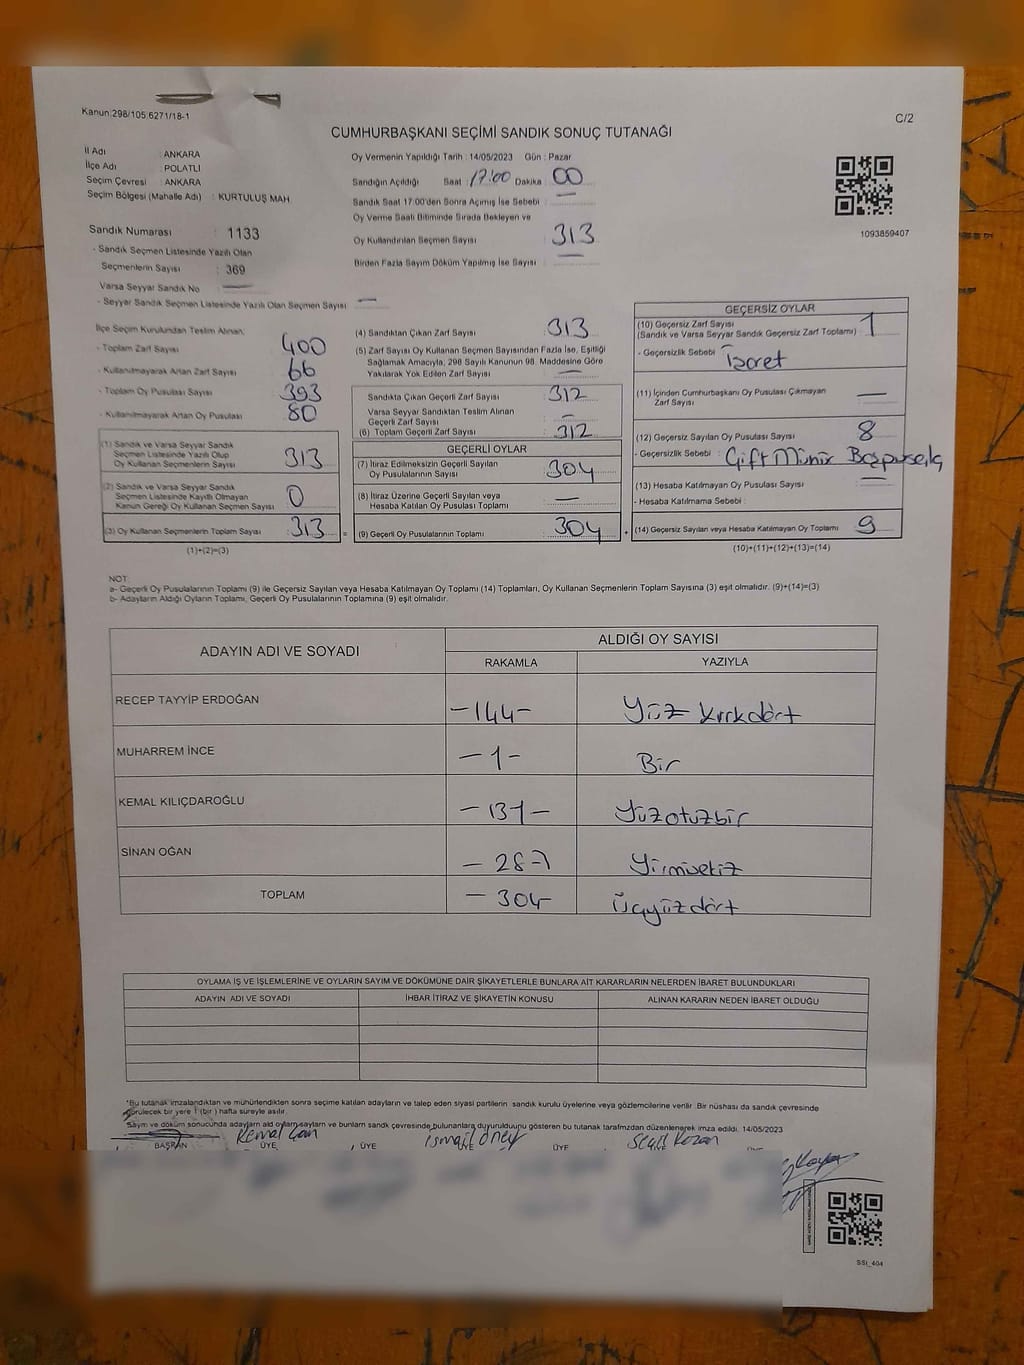 Kanun:298/105;6271/18-1
C/2
CUMHURBAŞKANI SEÇİMİ SANDIK SONUÇ TUTANAĞI
İl Adı : ANKARA
İlçe Adı : POLATLI
Seçim Çevresi : ANKARA
Seçim Bölgesi (Mahalle Adı) : KURTULUŞ MAH
Sandık Numarası : 1133
- Sandık Seçmen Listesinde Yazılı Olan
Seçmenlerin Sayısı : 369
Varsa Seyyar Sandık No —
- Seyyar Sandık Seçmen Listesinde Yazılı Olan Seçmen Sayısı —
Oy Vermenin Yapıldığı Tarih : 14/05/2023 Gün : Pazar
Sandığın Açıldığı Saat : 17:00 Dakika : 00
Sandık Saat 17:00'den Sonra Açımış İse Sebebi : —
Oy Verme Saati Bitiminde Sırada Bekleyen ve
Oy Kullandırılan Seçmen Sayısı : 313
Birden Fazla Sayım Döküm Yapılmış İse Sayısı : —
1093859407
İlçe Seçim Kurulundan Teslim Alınan;
- Toplam Zarf Sayısı : 400
- Kullanılmayarak Artan Zarf Sayısı : 66
- Toplam Oy Pusulası Sayısı : 393
- Kullanılmayarak Artan Oy Pusulası : 80
(1) Sandık ve Varsa Seyyar Sandık
Seçmen Listesinde Yazılı Olup
Oy Kullanan Seçmenlerin Sayısı : 313
(2) Sandık ve Varsa Seyyar Sandık
Seçmen Listesinde Kayıtlı Olmayan
Kanun Gereği Oy Kullanan Seçmen Sayısı : 0
(3) Oy Kullanan Seçmenlerin Toplam Sayısı : 313
(1)+(2)=(3)
(4) Sandıktan Çıkan Zarf Sayısı : 313
(5) Zarf Sayısı Oy Kullanan Seçmen Sayısından Fazla İse, Eşitliği
Sağlamak Amacıyla, 298 Sayılı Kanunun 98. Maddesine Göre
Yakılarak Yok Edilen Zarf Sayısı : —
Sandıkta Çıkan Geçerli Zarf Sayısı : 312
Varsa Seyyar Sandıktan Teslim Alınan
Geçerli Zarf Sayısı : —
(6) Toplam Geçerli Zarf Sayısı : 312
GEÇERLİ OYLAR
(7) İtiraz Edilmeksizin Geçerli Sayılan
Oy Pusulalarının Sayısı : 304
(8) İtiraz Üzerine Geçerli Sayılan veya
Hesaba Katılan Oy Pusulası Toplamı : —
= (9) Geçerli Oy Pusulalarının Toplamı : 304
GEÇERSİZ OYLAR
(10) Geçersiz Zarf Sayısı
(Sandık ve Varsa Seyyar Sandık Geçersiz Zarf Toplamı) : 1
- Geçersizlik Sebebi : İşaret
(11) İçinden Cumhurbaşkanı Oy Pusulası Çıkmayan
Zarf Sayısı : —
(12) Geçersiz Sayılan Oy Pusulası Sayısı : 8
- Geçersizlik Sebebi : Çift Mühür
(13) Hesaba Katılmayan Oy Pusulası Sayısı : —
- Hesaba Katılmama Sebebi :
+ (14) Geçersiz Sayılan veya Hesaba Katılmayan Oy Toplamı : 9
(10)+(11)+(12)+(13)=(14)
NOT:
a- Geçerli Oy Pusulalarının Toplamı (9) ile Geçersiz Sayılan veya Hesaba Katılmayan Oy Toplamı (14) Toplamları, Oy Kullanan Seçmenlerin Toplam Sayısına (3) eşit olmalıdır. (9)+(14)=(3)
b- Adayların Aldığı Oyların Toplamı, Geçerli Oy Pusulalarının Toplamına (9) eşit olmalıdır.
ADAYIN ADI VE SOYADI
ALDIĞI OY SAYISI
RAKAMLA YAZIYLA
RECEP TAYYİP ERDOĞAN -144- Yüz kırkdört
MUHARREM İNCE -1- Bir
KEMAL KILIÇDAROĞLU -131- Yüzotuzbir
SİNAN OĞAN - 28- Yirmisekiz
TOPLAM - 304- Üçyüzdört
OYLAMA İŞ VE İŞLEMLERİNE VE OYLARIN SAYIM VE DÖKÜMÜNE DAİR ŞİKAYETLERLE BUNLARA AİT KARARLARIN NELERDEN İBARET BULUNDUKLARI
ADAYIN ADI VE SOYADI İHBAR İTİRAZ VE ŞİKAYETİN KONUSU ALINAN KARARIN NEDEN İBARET OLDUĞU
*Bu tutanak imzalandıktan ve mühürlendikten sonra seçime katılan adayların ve talep eden siyasi partilerin sandık kurulu üyelerine veya gözlemcilerine verilir. Bir nüshası da sandık çevresinde
görülecek bir yere 1 (bir) hafta süreyle asılır.
*Sayım ve döküm sonucunda adayların ald oyların sayların ve bunların sandık çevresinde bulunanlara duyurulduğunu gösteren bu tutanak tarafımızdan düzenlenerek imza edildi. 14/05/2023
Kemal Can İsmail Öney
BAŞKAN ÜYE ÜYE ÜYE
SSt_404